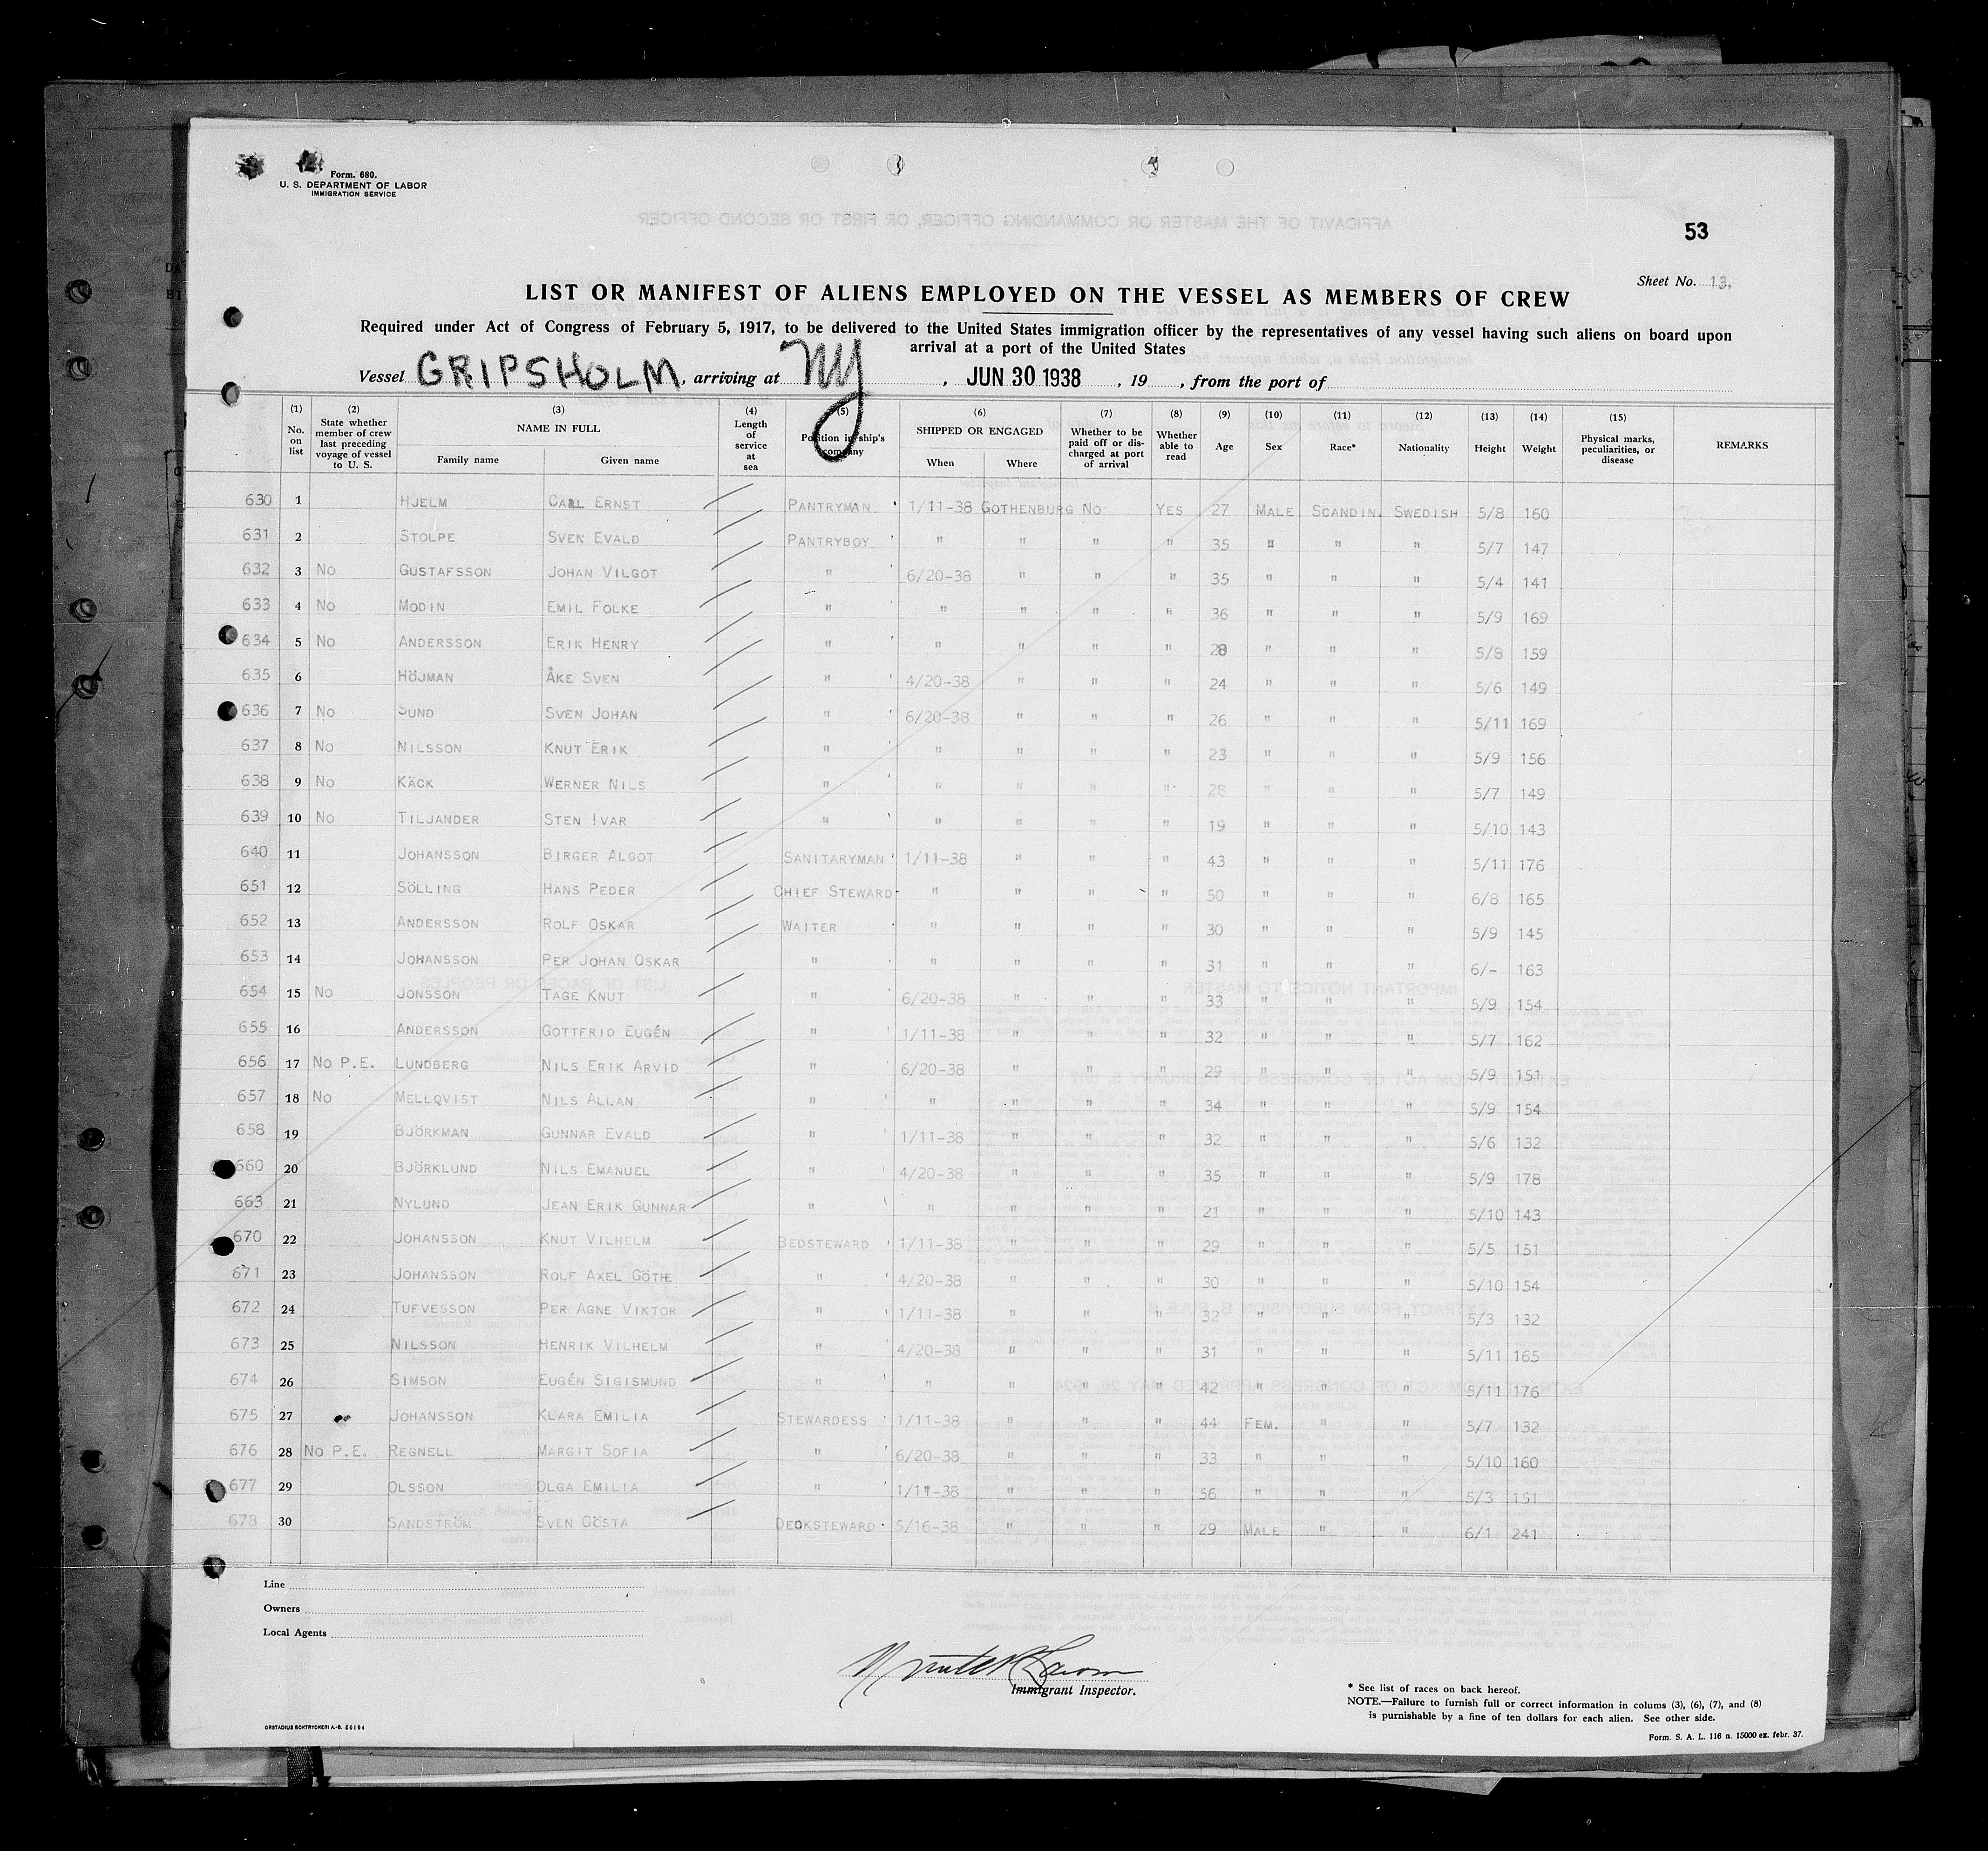 Form. 680.
U. S. DEPARTMENT OF LABOR
IMMIGRATION SERVICE
53
Sheet No. 13.
LIST OR MANIFEST OF ALIENS EMPLOYED ON THE VESSEL AS MEMBERS OF CREW
Required under Act of Congress of February 5, 1917, to be delivered to the United States immigration officer by the representatives of any vessel having such aliens on board upon
arrival at a port of the United States
Vessel GRIPSHOLM, arriving at NY, JUN 30 1938, 19 , from the port of
(1) No. on list (2) State whether member of crew last preceding voyage of vessel to U. S. (3) NAME IN FULL Family name Given name (4) Length of service at sea (5) Position in ship's company (6) SHIPPED OR ENGAGED When Where (7) Whether to be paid off or discharged at port of arrival (8) Whether able to read (9) Age (10) Sex (11) Race* (12) Nationality (13) Height (14) Weight (15) Physical marks, peculiarities, or disease REMARKS
630 1 HJELM CARL ERNST PANTRYMAN 1/11-38 GOTHENBURG NO YES 27 MALE SCANDIN. SWEDISH 5/8 160
631 2 STOLPE SVEN EVALD PANTRYBOY " " " " 35 " " " 5/7 147
632 3 NO GUSTAFSSON JOHAN VILGOT " 6/20-38 " " " 35 " " " 5/4 141
633 4 NO MODIN EMIL FOLKE " " " " " 36 " " " 5/9 169
634 5 NO ANDERSSON ERIK HENRY " " " " " 28 " " " 5/8 159
635 6 HÖJMAN ÅKE SVEN " 4/20-38 " " " 24 " " " 5/6 149
636 7 NO SUND SVEN JOHAN " 6/20-38 " " " 26 " " " 5/11 169
637 8 NO NILSSON KNUT ERIK " " " " " 23 " " " 5/9 156
638 9 NO KÄCK WERNER NILS " " " " " 28 " " " 5/7 149
639 10 NO TILJANDER STEN IVAR " " " " " 19 " " " 5/10 143
640 11 JOHANSSON BIRGER ALGOT SANITARYMAN 1/11-38 " " " 43 " " " 5/11 176
651 12 SÖLLING HANS PEDER CHIEF STEWARD " " " " 50 " " " 6/8 165
652 13 ANDERSSON ROLF OSKAR WAITER " " " " 30 " " " 5/9 145
653 14 JOHANSSON PER JOHAN OSKAR " " " " " 31 " " " 6/- 163
654 15 NO JONSSON TAGE KNUT " 6/20-38 " " " 33 " " " 5/9 154
655 16 ANDERSSON GOTTFRID EUGÉN " 1/11-38 " " " 32 " " " 5/7 162
656 17 NO P.E. LUNDBERG NILS ERIK ARVID " 6/20-38 " " " 29 " " " 5/9 151
657 18 NO MELLQVIST NILS ALLAN " " " " " 34 " " " 5/9 154
658 19 BJÖRKMAN GUNNAR EVALD " 1/11-38 " " " 32 " " " 5/6 132
660 20 BJÖRKLUND NILS EMANUEL " 4/20-38 " " " 35 " " " 5/9 178
663 21 NYLUND JEAN ERIK GUNNAR " " " " " 21 " " " 5/10 143
670 22 JOHANSSON KNUT VILHELM BEDSTEWARD 1/11-38 " " " 29 " " " 5/5 151
671 23 JOHANSSON ROLF AXEL GÖTHE " 4/20-38 " " " 30 " " " 5/10 154
672 24 TUFVESSON PER AGNE VIKTOR " 1/11-38 " " " 32 " " " 5/3 132
673 25 NILSSON HENRIK VILHELM " 4/20-38 " " " 31 " " " 5/11 165
674 26 SIMSON EUGÉN SIGISMUND " " " " " 42 " " " 5/11 176
675 27 JOHANSSON KLARA EMILIA STEWARDESS 1/11-38 " " " 44 FEM. " " 5/7 132
676 28 NO P.E. REGNELL MARGIT SOFIA " 6/20-38 " " " 33 " " " 5/10 160
677 29 OLSSON OLGA EMILIA " 1/11-38 " " " 56 " " " 5/3 151
678 30 SANDSTRÖM SVEN GÖSTA DECKSTEWARD 5/16-38 " " " 29 MALE " " 6/1 241
Line
Owners
Local Agents
Immigrant Inspector.
* See list of races on back hereof.
NOTE.—Failure to furnish full or correct information in colums (3), (6), (7), and (8)
is punishable by a fine of ten dollars for each alien. See other side.
ORSTADIUS BOKTRYCKERI A.-B. 50194
Form. S. A. L. 116 n. 15000 ex. febr. 37.